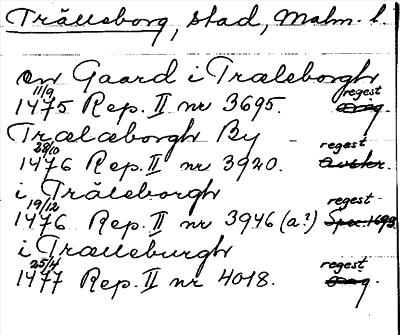 Trälleborg, stad, Malm. l.
en Gaard i Træleborgh
11/9 regest
1475 Rep. II nr 3695. orig.
Trælæborgh By
28/10 regest
1476 Rep. II nr 3920. avskr.
i Träleborgh
19/12 regest
1476 Rep. II nr 3946 (a?) Spec. 1693
i Trælleburgh
25/4 regest
1477 Rep. II nr 4018. orig.